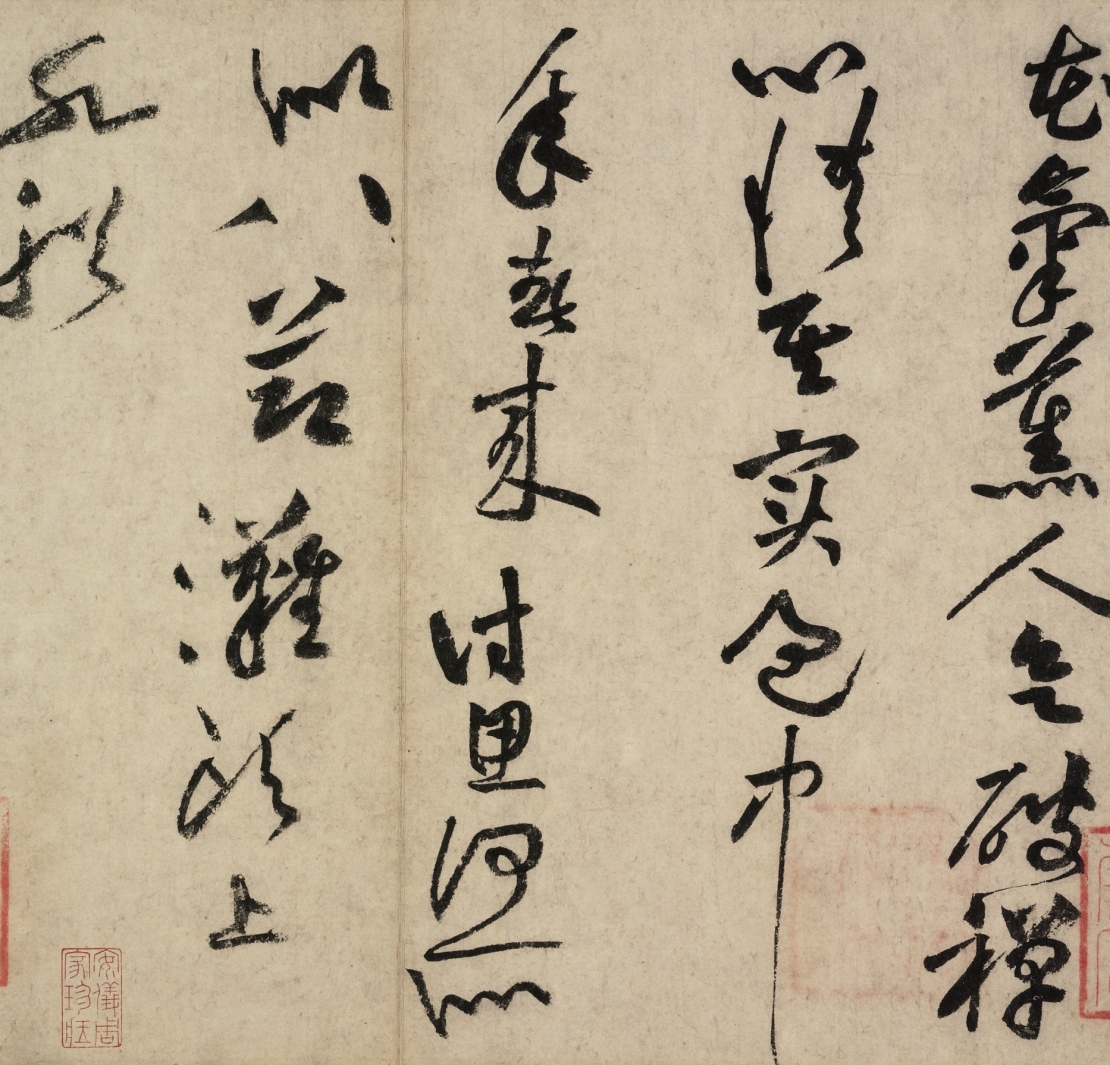 花氣薰人欲破禪
心情其實過中
年春來詩思何所
似八節灘頭上
水船
安儀周家珍藏